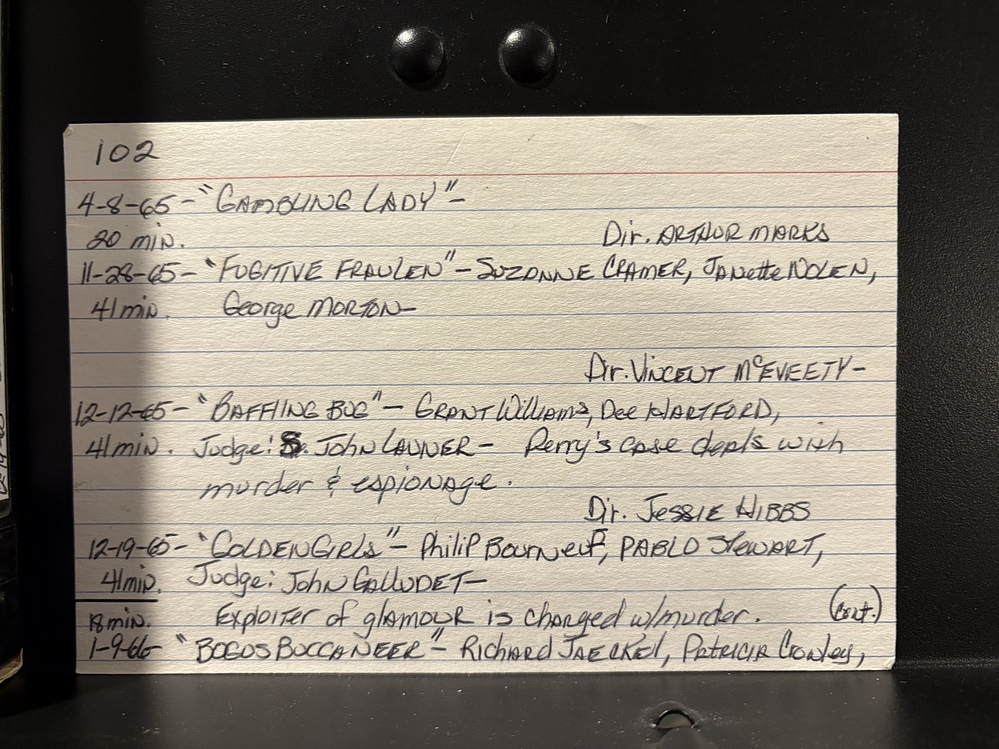 102
4-8-65- "GAMBLING LADY"-
20 min. Dir. ARTHUR MARKS
11-28-65- "FUGITIVE FRAULEN"- SUZANNE CRAMER, JANette NOLEN,
41 min. George MORTON-
Dir. VINCENT McEVEETY-
12-12-65- "BAFFLING BUG"- GRANT Williams, Dee HARTFORD,
41 min. Judge: S. JOHN LAUNER- Perry's case deals with
murder & espionage.
Dir. JESSIE HIBBS
12-19-65- "GOLDEN GIRLS"- PHILIP BOURNEUF, PABLO STEWART,
41 min. Judge: JOHN GALLUDET-
18 min. Exploiter of glamour is charged w/murder. (cont.)
1-9-66- "BOGUS BUCCANEER"- Richard JAECKEL, PATRICIA Crowley,